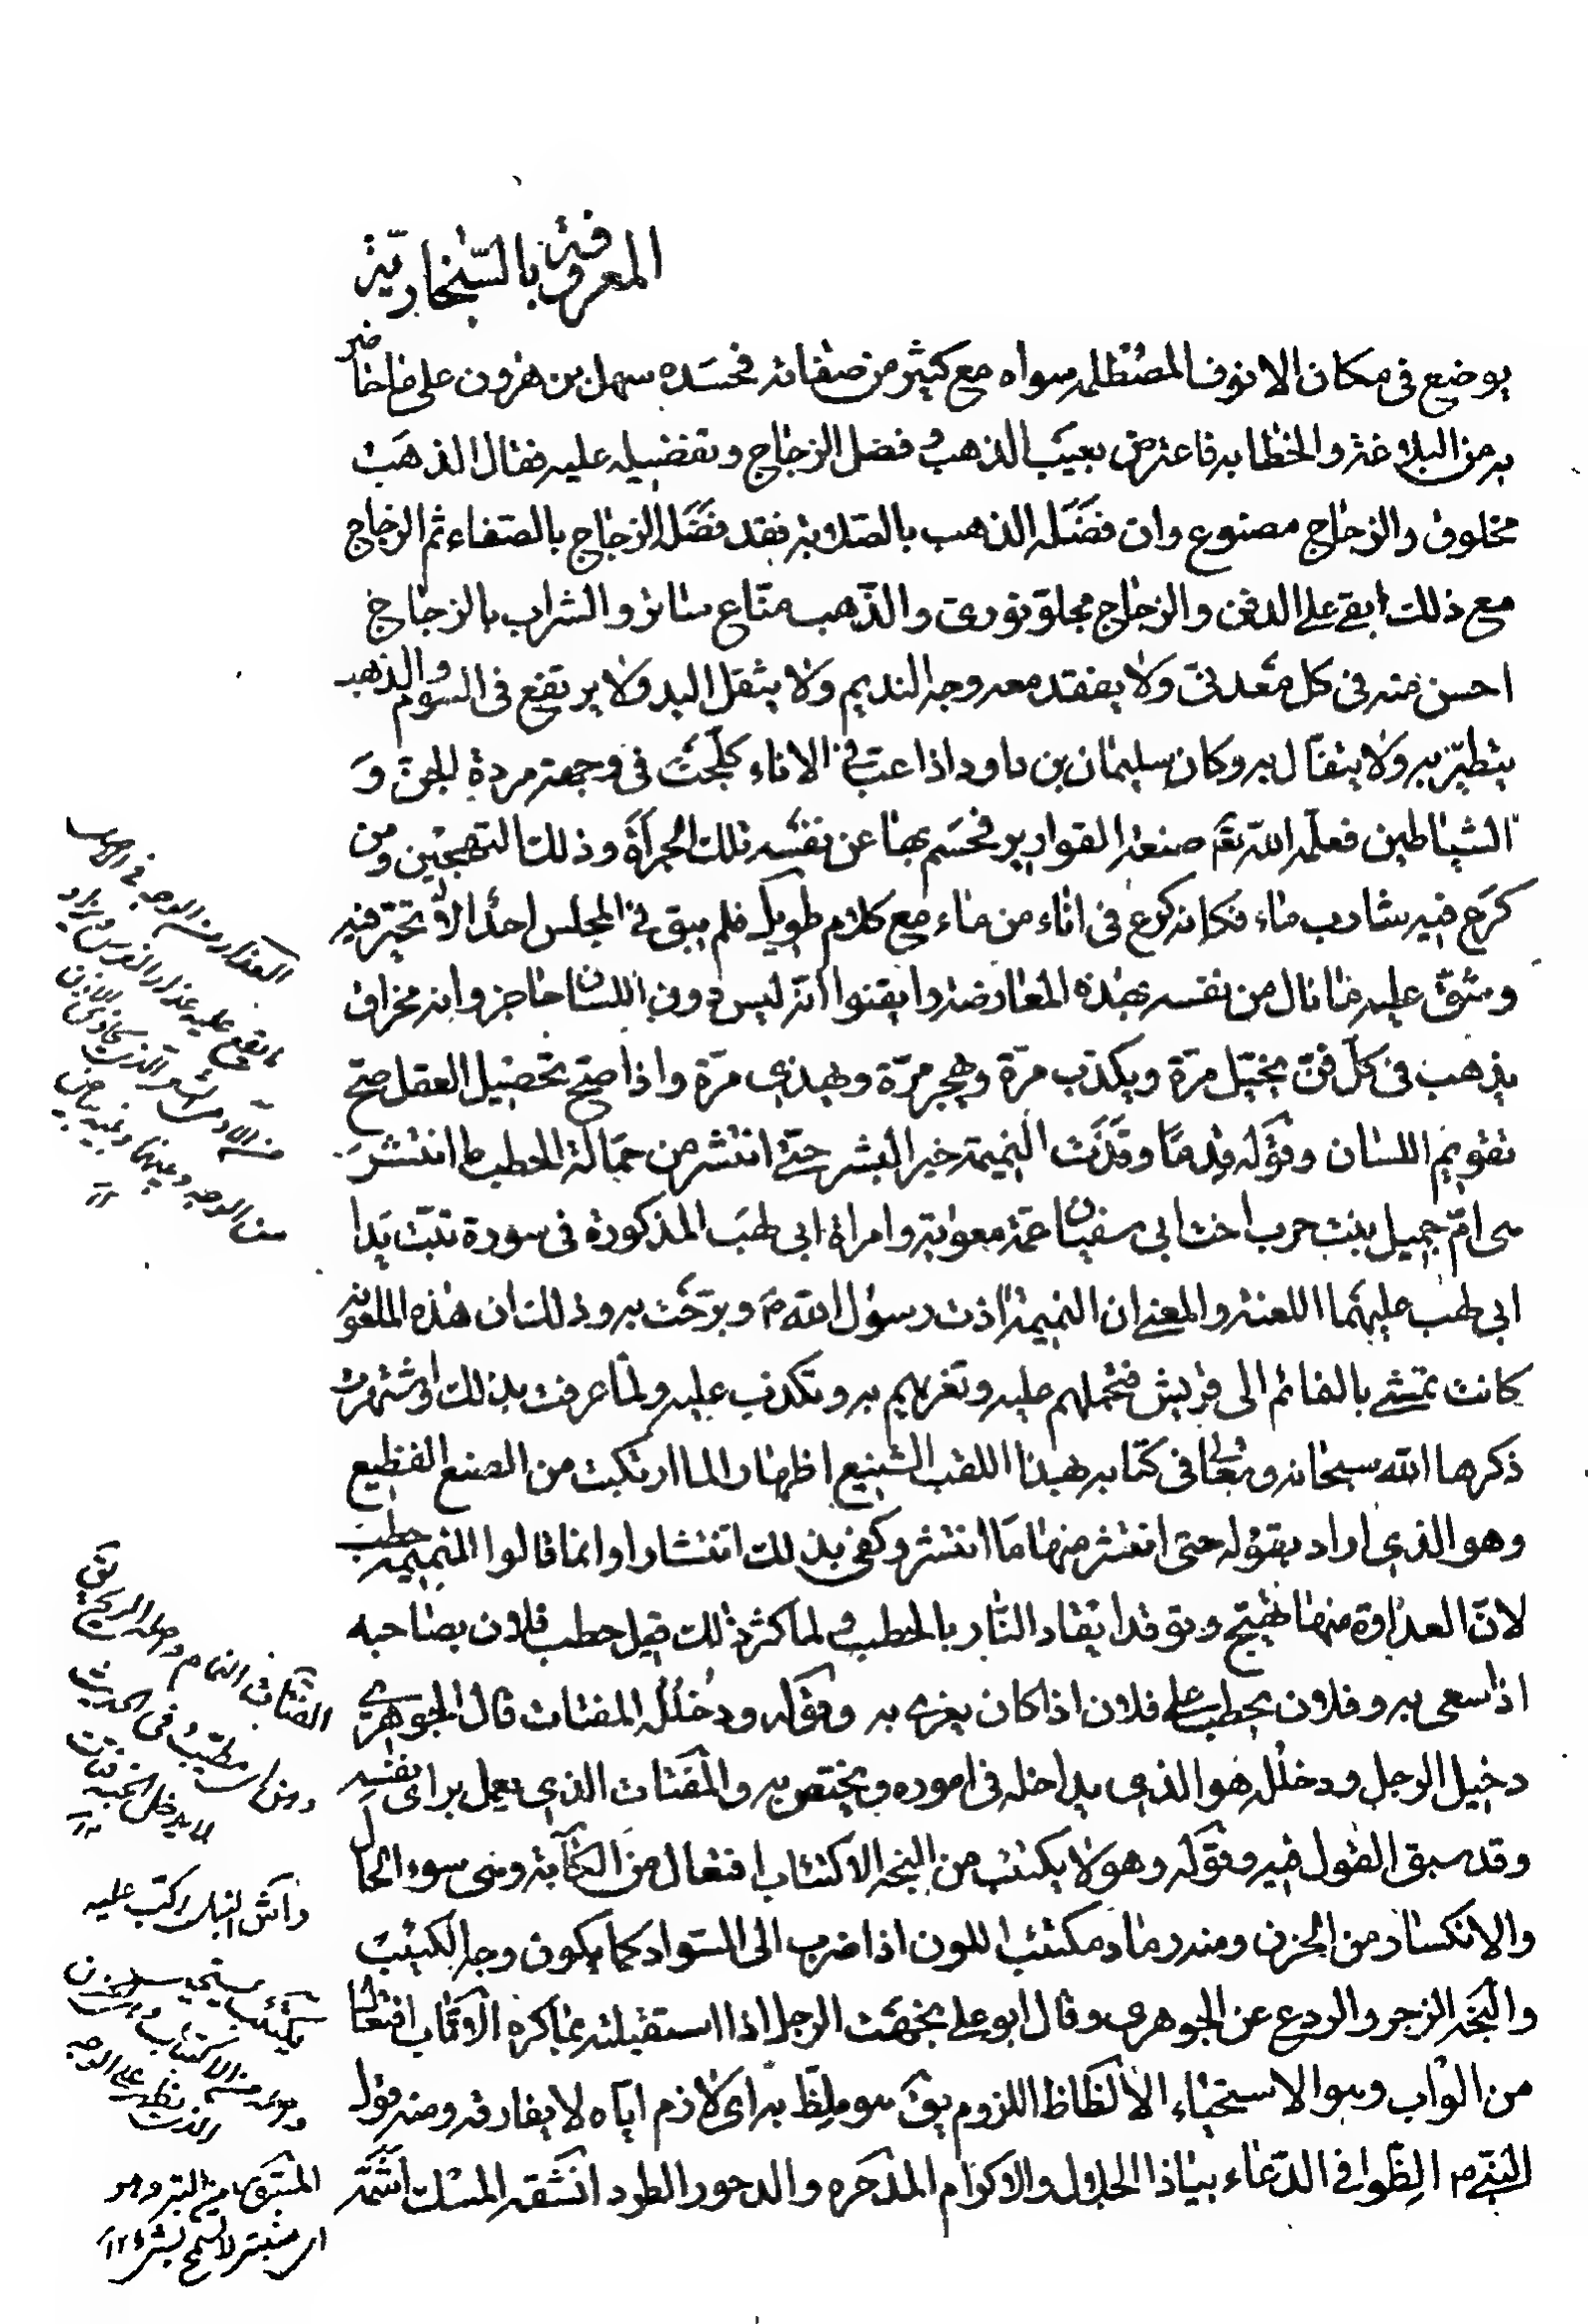 المعروفة بالسّنجاريّة
يوضع فى مكان الا نوف المصْطلمة سواه مع كثير من صفاته فحسَده سهل بن هٰرون على ما حاضر
به من البلاغة والخطابه فاعترض بعيَب الذهب و فضل الزجاج وتفضيله عليه فقال الذهَب
مخلوق والزجاج مصنوع وان فضَله الذهب بالصّلابة فقد فضَله الزجاج بالصّفاء ثم الزجاج
مع ذلك ابقے على الدفن والزجاج مجلوّ نورىّ والذّهب متّاع سائر والشراب بالزجاج
احسن منه فى كل معْدنىّ ولا يفقد معه وجه النديم ولا يثقل اليد ولا يرتفع فى السوم والذهب
يتطيّر به ولا يتفأل به وكان سليمان بن داود اذا عبّ فى الاناء كلّحت فى وجهه مردة الجنّ وَ
الشياطين فعلّمه اللّه تعٓ صنعة القوارير فحسَم بها عن نفسْه تلك الجرأة وذلك التهجْين ومن
كرَع فيه شارب ماء فكانه كرع فى اناء من ماء مع كلام طويل فلم يبق فى المجلس احدٌ الا وتحيّر فيه
وشقّ عليه ما نال من نفسه بهٰذه المعارضة وايقنوا انّه ليس دون اللسان حاجز وانه مخراق
يذهب فى كلّ فنّ يخيّل مرّة ويكذب مرّة ويهجر مرّة ويهذى مرّة واذا صحّ تحصيل العقل صحّ
تقويم اللسان وقوْله قِدمًا وقذَت النميمة خير البشر حتّے انتشر من حمّالة الحطب ما انتشرَ
هى امّ جميل بنت حرب اخت ابى سفيان عمّة معوية وامراة ابى لهَب المذكورة فى سورة تبّت يَدا
ابى لهب عليهما اللعنة والمعنے ان النميمة اذت رسول اللّه ص وبرّحَت به وذلك ان هذه الملعونه
كانت تمشے بالنمائم الى قريش فتحملهم عليه وتغريهم به وتكذب عليه ولمّا عرفت بذلك واشتهرت
ذكرها اللّه سبحانه وتعالى فى كتابه بهذا اللقب الشنيع اظهارا لما ارتكبت من الصنع الفظيع
وهو الذى اراد بقوْله حتى انتشر منها مَا انتشر وكفى بذلك انتشارا وانما قالوا للنميمة حطب
لانّ العداوة منها تهيّج وتوقد ايقاد النّار بالحطب ولما كثر ذلك قيل حطب فلان بصاحبه
اذا سعى به وفلان يحطب على فلان اذا كان يغرى به وقوْله ودُخلُلُه المفتات قال الجوهرى
دخيل الرجل ودخلُله هو الذى يداخله فى اموره ويختصّ به والمُفتات الذى يعمل براى نفسه
وقد سبق القول فيه وقوْله وهو لا يكتئب من النجْه الاكتئاب افتعال من الكآبة وهى سوء الحال
والانكسار من الحزن ومنه رماد مكتئب اللون اذا ضرب الى السّواد كما يكون وجه الكئيب
والنّجْه الزجر والردع عن الجوهرى وقال ابو على نجَهْت الرجل اذا استقبلته بما كره الاتّئاب افتعال
من الوأب وهو الاستحياء الالظاظ اللزوم يقٓ هو ملِظّ به اى لازم اياه لا يفارقه ومنه قول
النبىّ ص الظّوا فى الدّعاء بياذا الجلال والاكرام المدَحره والدحور الطرد انتشقه المسْك اشتمّه
العذار من الوجه
ما يقع عليه عذار الفرس
من الوجه وعينها
القتات النمام
وفى الحديث
لا يدخل الجنة قتات